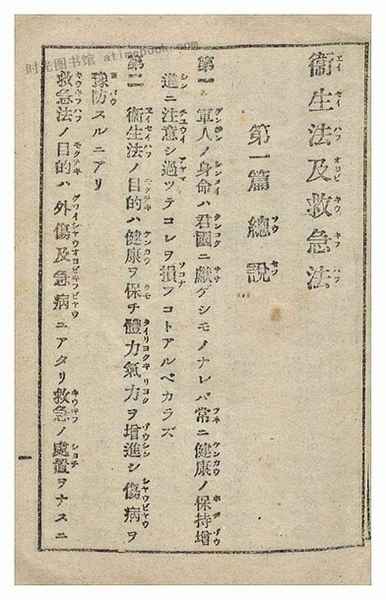 衞生法及救急法
第一篇 總說
第一 軍人ノ身命ハ君國ニ獻ゲシモノナレバ常ニ健康ノ保持增
進ニ注意シ過ツテコレヲ損フコトアルベカラズ
第二 衞生法ノ目的ハ健康ヲ保チ體力氣力ヲ增進シ傷病ヲ
豫防スルニアリ
救急法ノ目的ハ外傷及急病ニアタリ救急ノ處置ヲナスニ
一
时光图书馆 atimebook.com